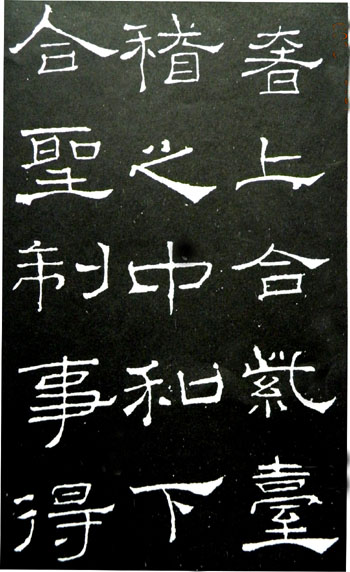 奢上合紫臺
稽之中和下
合聖制事得